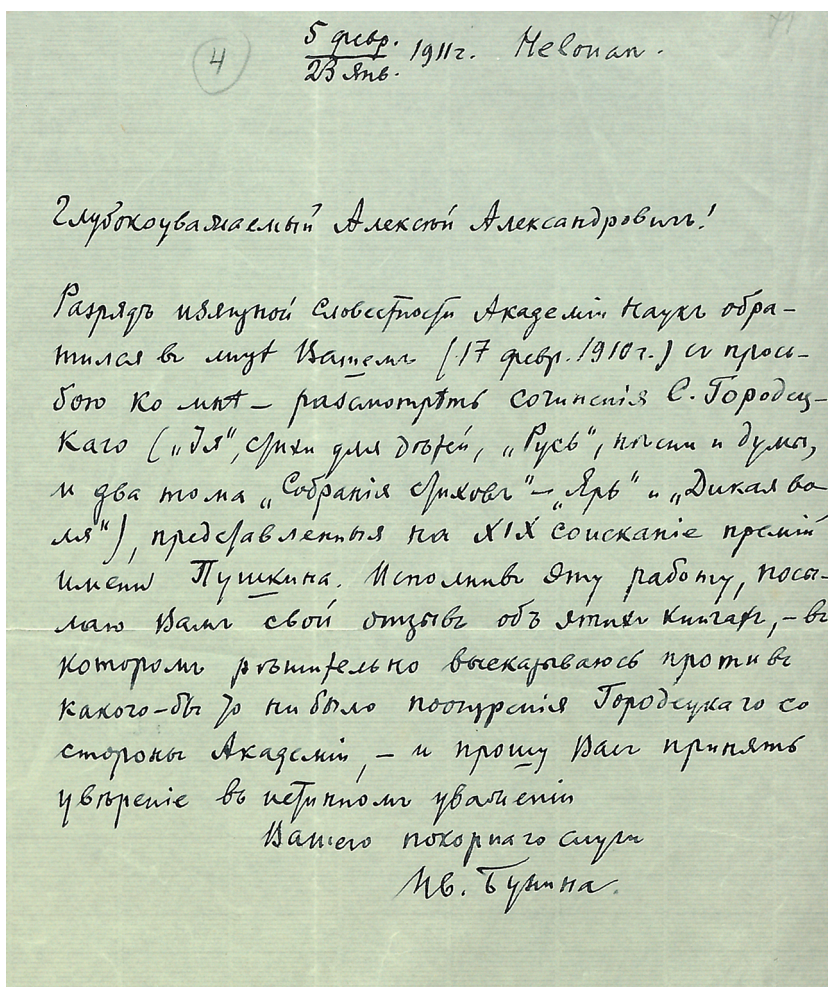 4
5 февр.
23 янв. 1911 г. Helouan.
Глубокоуважаемый Алексѣй Александровичъ!
Разрядъ изящной словестности Академіи Наукъ обра-
тился въ лицѣ Вашемъ (17 февр. 1910 г.) съ прось-
бою ко мнѣ – разсмотрѣть сочиненія С. Городец-
каго („Ія“, стихи для дѣтей, „Русь“, пѣсни и думы,
и два тома „Собранія стиховъ“ – „Ярь“ и „Дикая во-
ля“), представленныя на XIX соисканіе премій
имени Пушкина. Исполнивъ эту работу, посы-
лаю Вамъ свой отзывъ объ этихъ книгахъ, – въ
которомъ рѣшительно высказываюсь противъ
какого-бы то ни было поощренія Городецкаго со
стороны Академіи, – и прошу Васъ принять
увѣреніе въ истинномъ уваженіи
Вашего покорнаго слуги
Ив. Бунина.